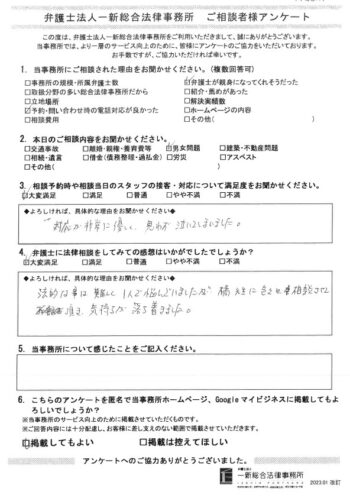 弁護士法人一新総合法律事務所 ご相談者様アンケート
この度は、弁護士法人一新総合法律事務所をご利用いただきまして、誠にありがとうございます。
当事務所では、より一層のサービス向上のために、皆様にアンケートのご協力をいただいております。
お手数ですが、ご協力いただければ幸いです。
1. 当事務所にご相談された理由をお聞かせください。(複数回答可)
□事務所の規模・所属弁護士数 ☑弁護士が親身になってくれそうだった
□取扱分野の多い総合法律事務所だから □紹介・薦めがあった
□立地場所 □解決実績数
☑予約・問い合わせ時の電話対応が良かった □ホームページの内容
□相談費用 □その他( )
2. 本日のご相談内容をお聞かせください。
□交通事故 □離婚・親権・養育費等 ☑男女問題 □建築・不動産問題
□相続・遺言 □借金(債務整理・過払金) □労災 □アスベスト
□その他( )
3. 相談予約時や相談当日のスタッフの接客・対応について満足度をお聞かせください。
☑大変満足 □満足 □普通 □やや不満 □不満
◆よろしければ、具体的な理由をお聞かせください◆
対応が非常に優しく、思わず泣いてしまいました。
4. 弁護士に法律相談をしてみての感想はいかがでしたでしょうか?
☑大変満足 □満足 □普通 □やや不満 □不満
◆よろしければ、具体的な理由をお聞かせください◆
法的な事は難しく 1人で悩んでいましたが
気持ちが落ち着きました。
5. 当事務所について感じたことをご記入ください。
6. こちらのアンケートを匿名で当事務所ホームページ、Google マイビジネスに掲載してもよ
ろしいでしょうか?
※当事務所のサービス向上のために掲載させていただくものです。
※ご回答内容には十分配慮し、お客様に差し支えのない範囲で掲載させていただきます。
☑掲載してもよい □掲載は控えてほしい
アンケートへのご協力ありがとうございました。
弁護士法人
一新総合法律事務所
2023.01 改訂